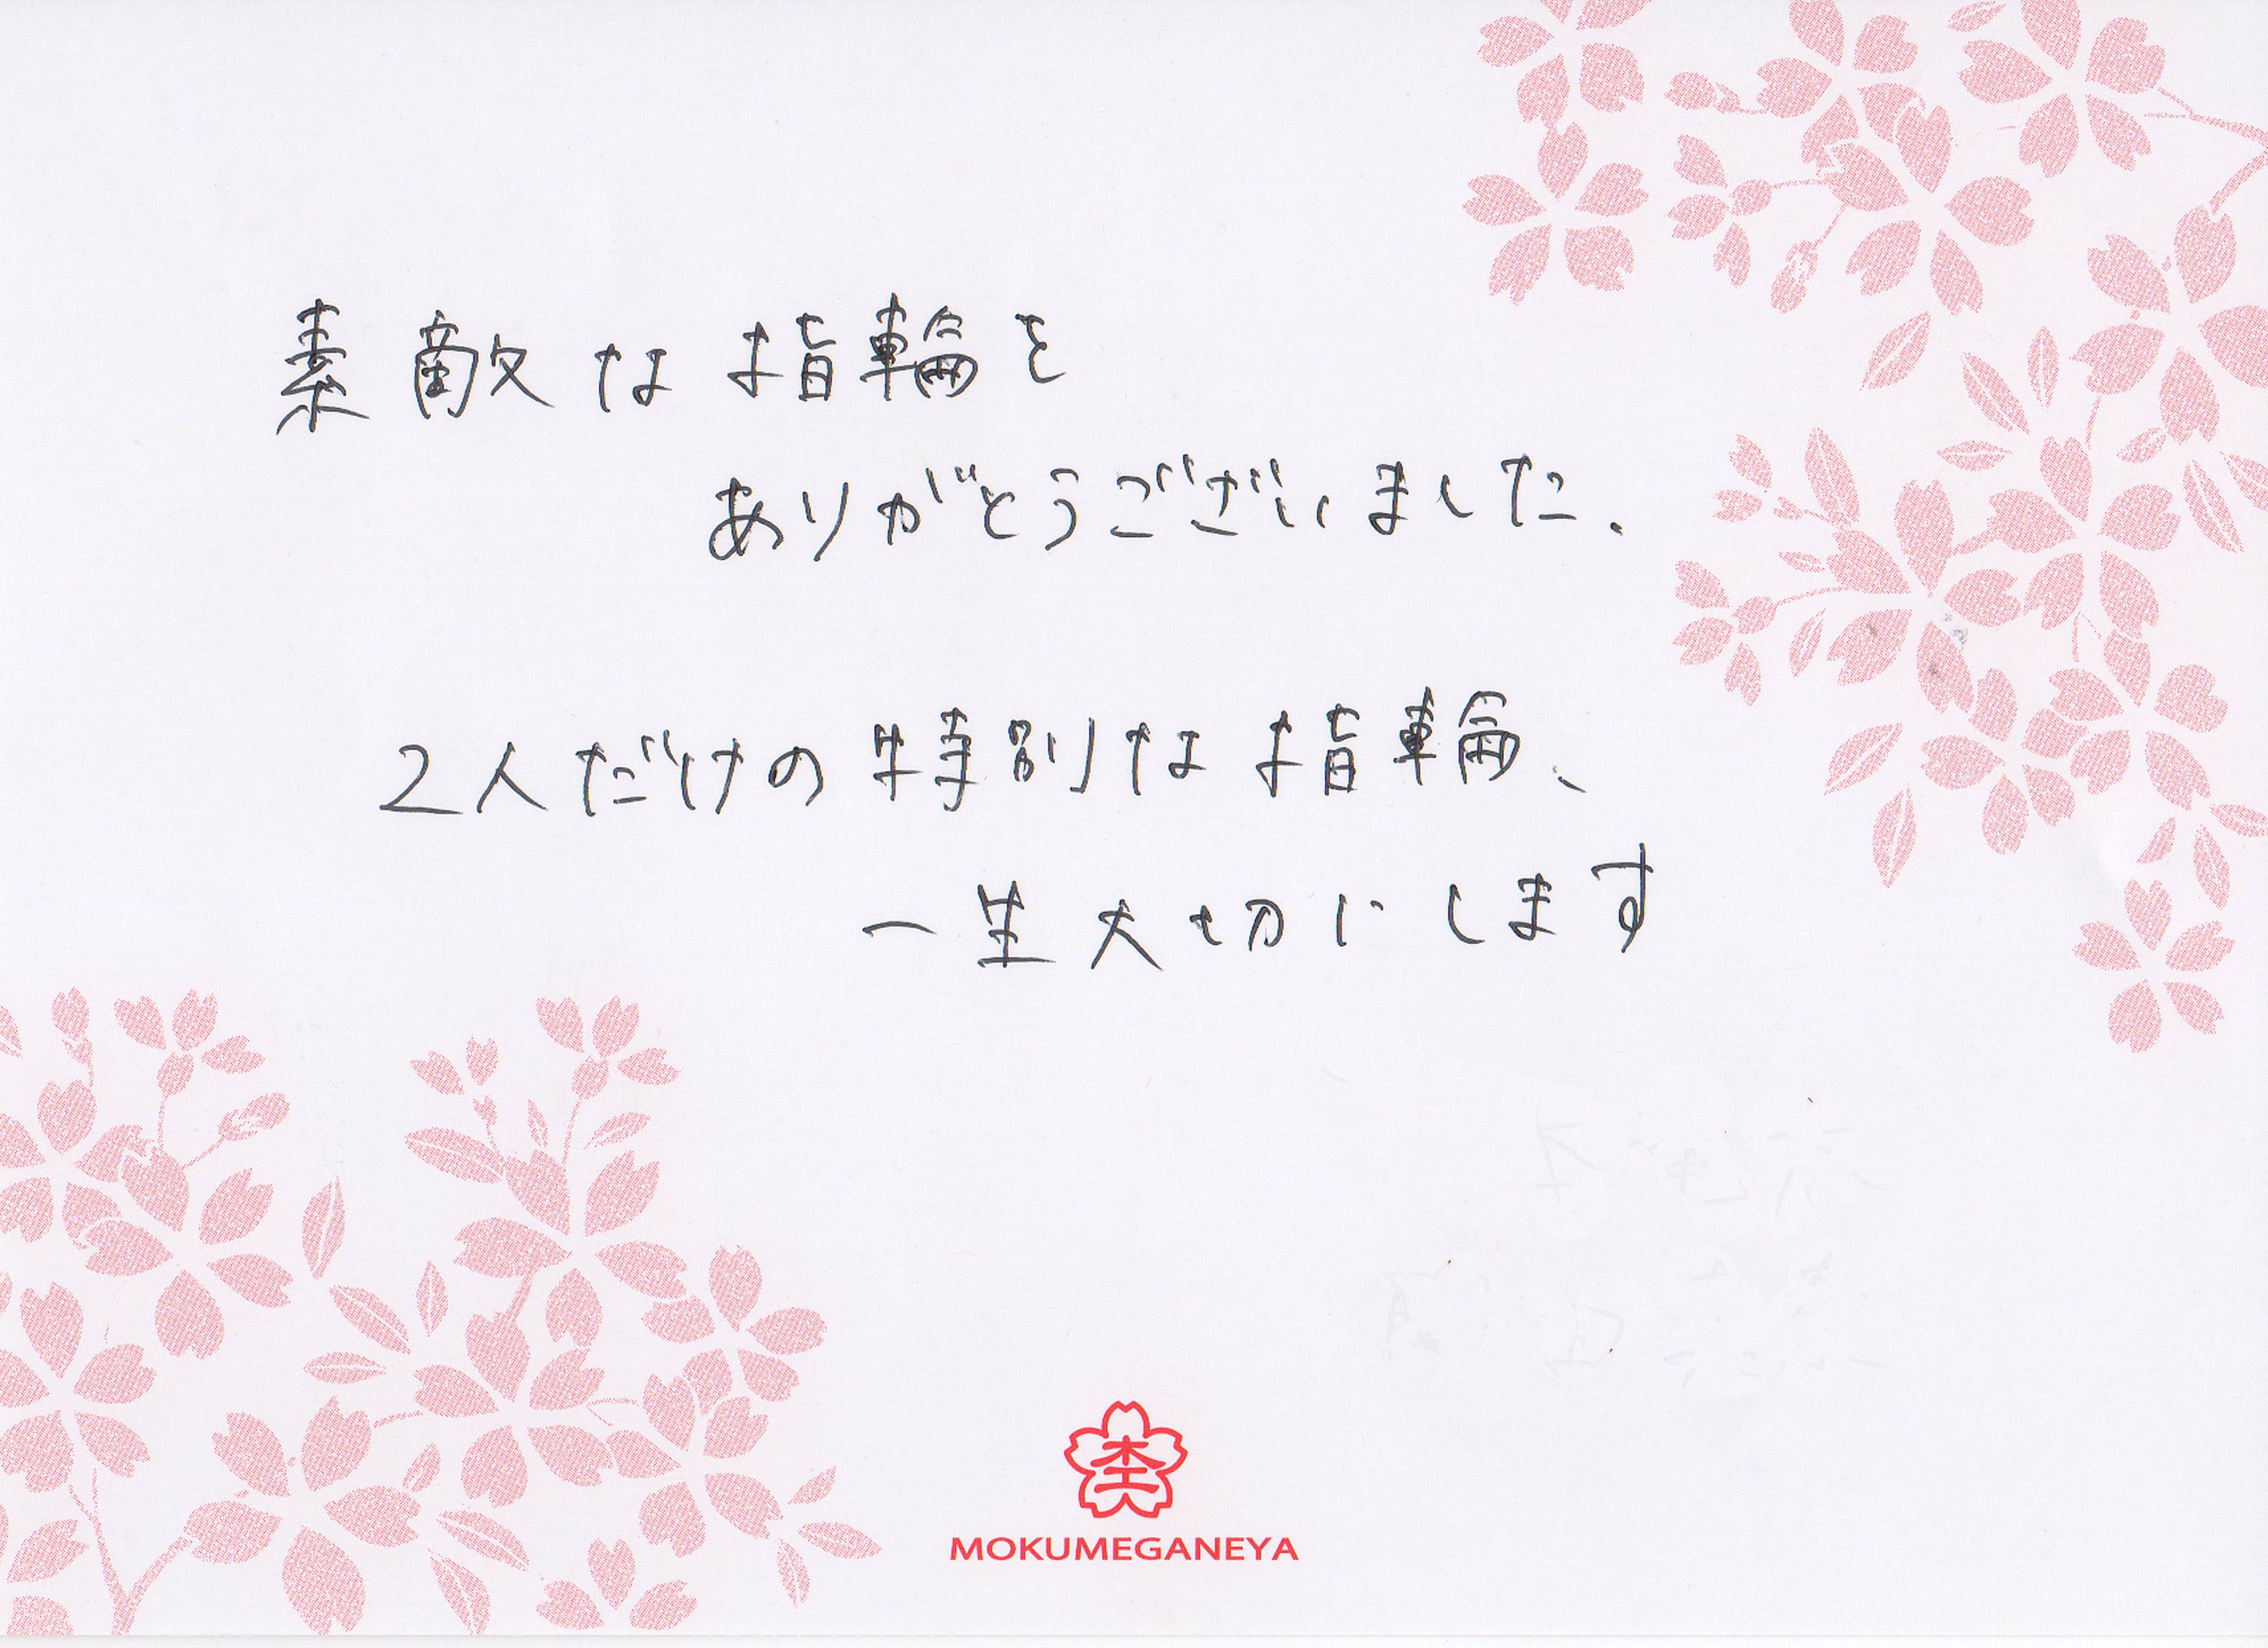 素敵な指輪を
ありがとうございました.
2人だけの特別な指輪、
一生大切にします
杢
MOKUMEGANEYA